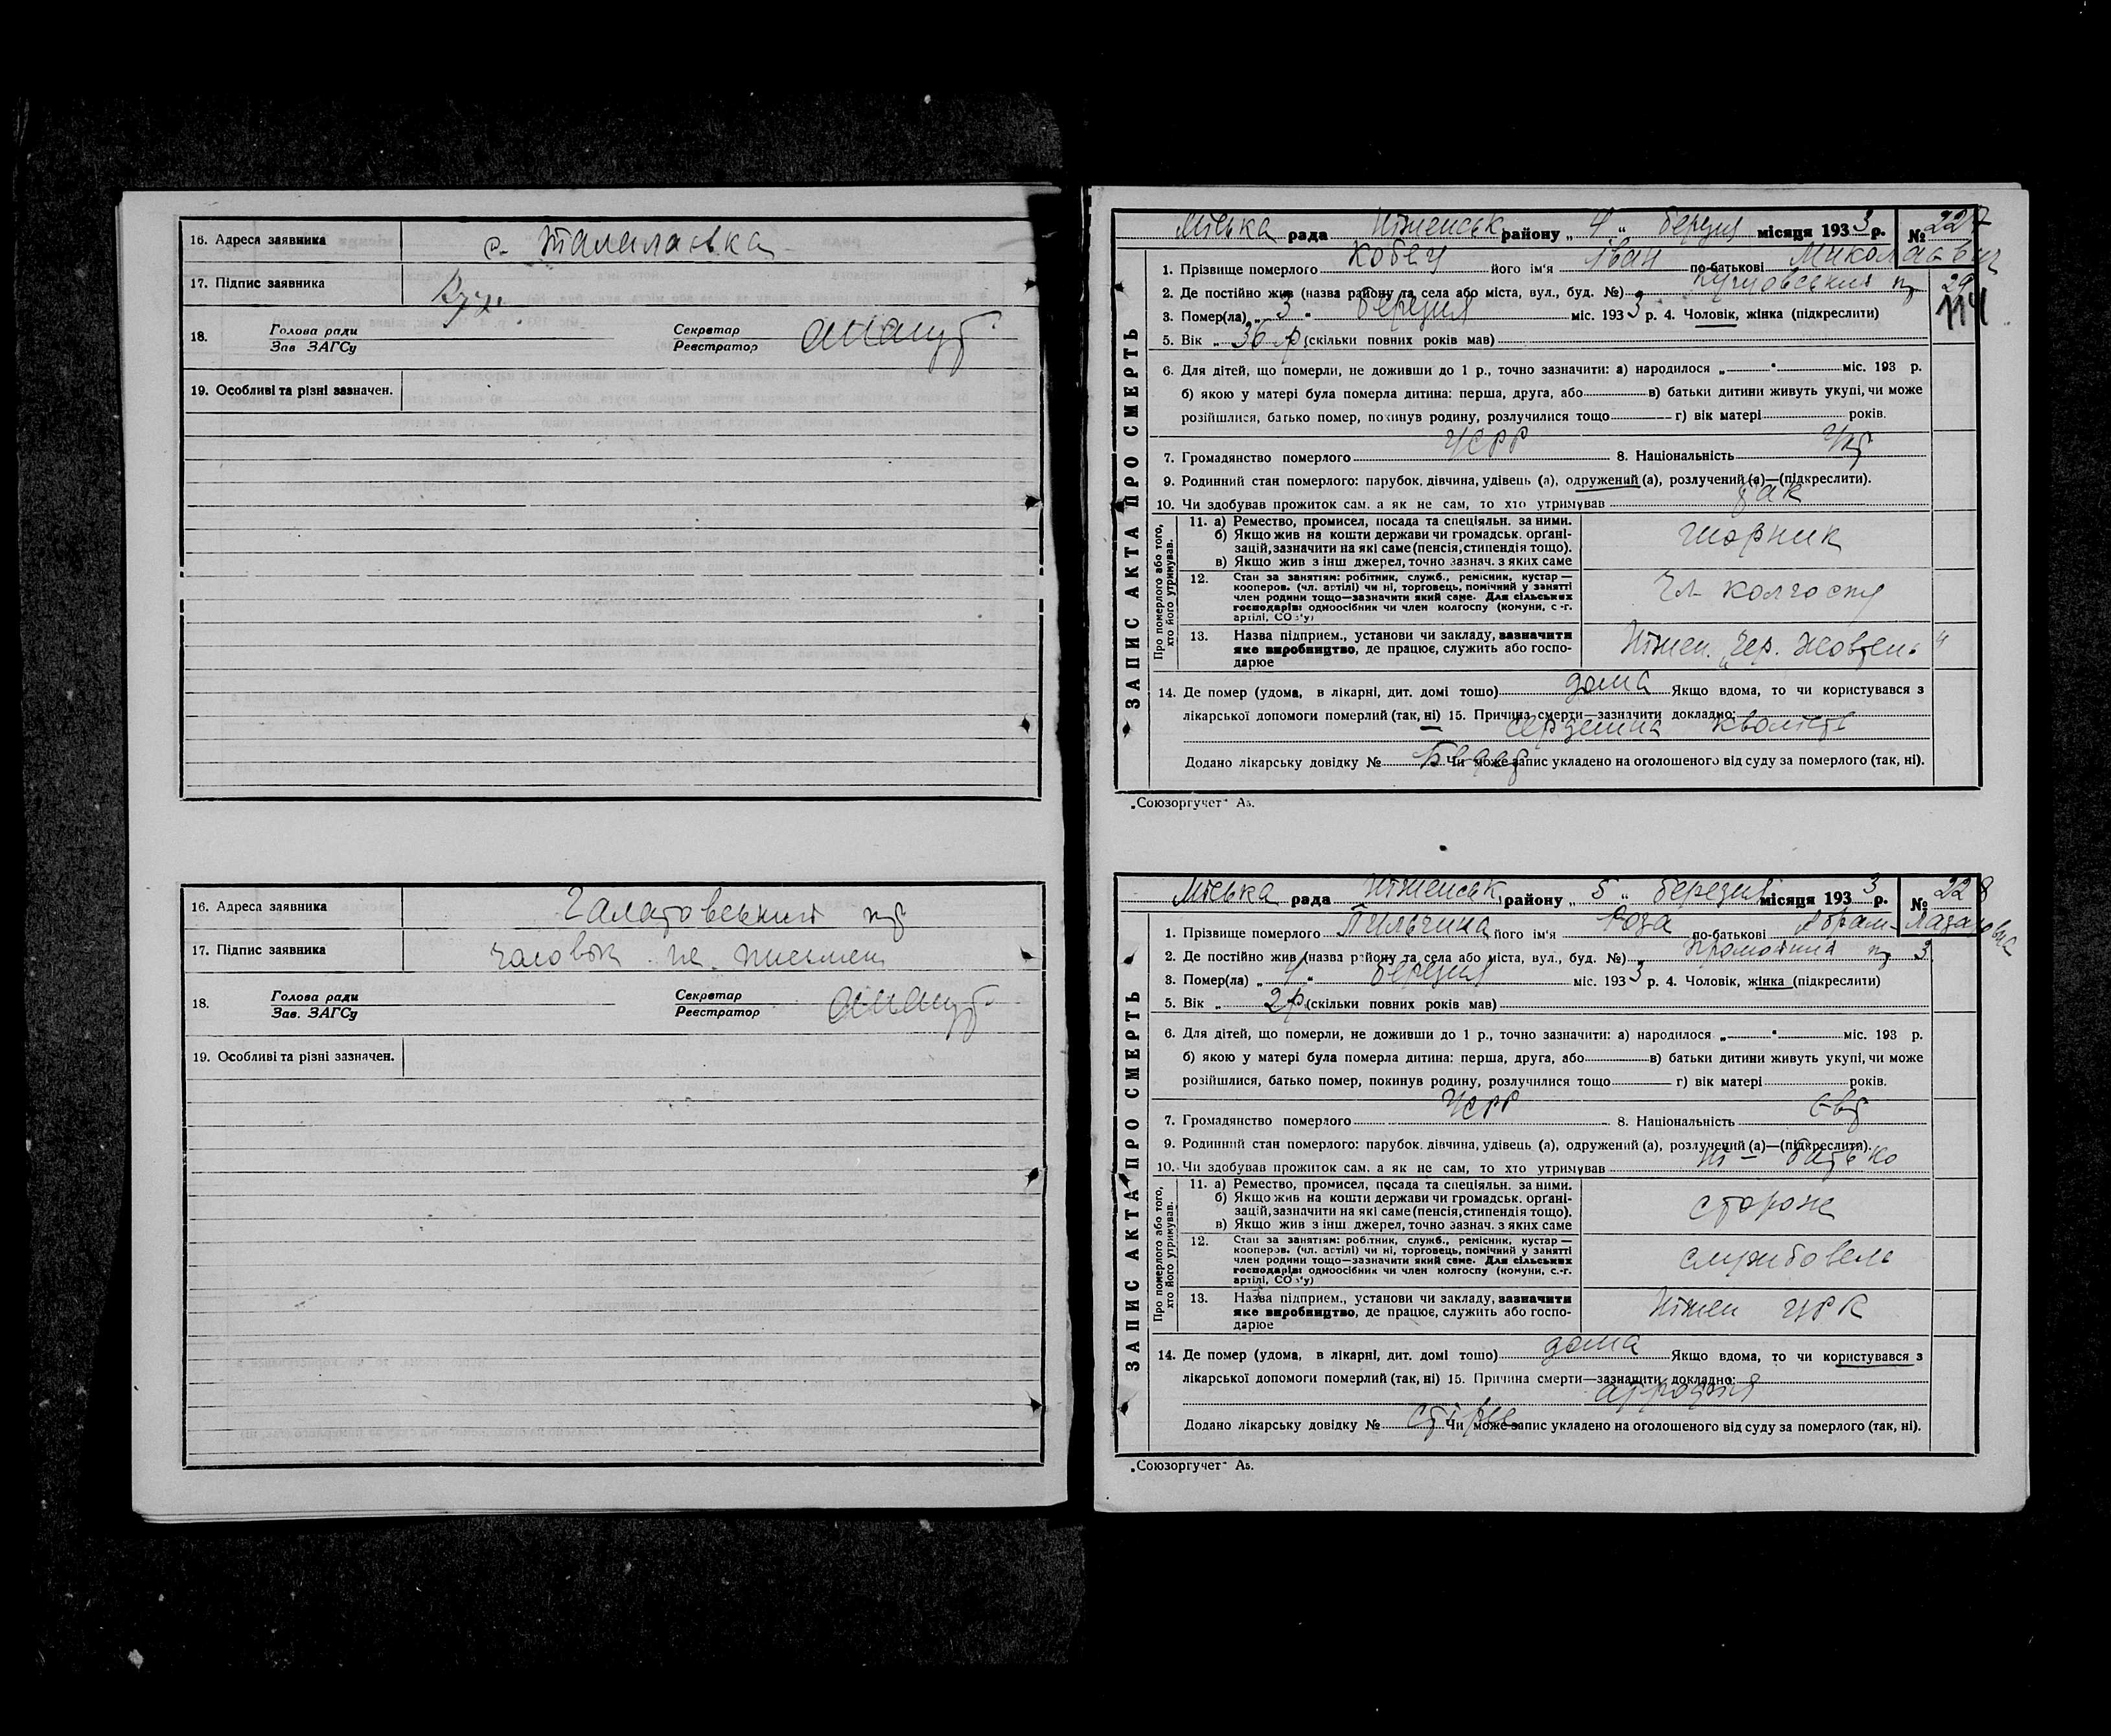 16. Адреса заявника с. Талалаєвка
17. Підпис заявника
18. Голова ради Секретар
Зав ЗАГСу Реєстратор
19. Особливі та різні зазначен.
16. Адреса заявника
17. Підпис заявника чоловік не письмен
18. Голова ради Секретар
Зав. ЗАГСу Реєстратор
19. Особливі та різні зазначен.
ЗАПИС АКТА ПРО СМЕРТЬ
Міська рада Ніженськ району „ 4 “ березня місяця 1933 р. № 227
1. Прізвище померлого Кобец його ім'я Іван по-батькові Миколаєвич
2. Де постійно жив (назва району та села або міста, вул., буд. №)
114
3. Помер(ла) „ 3 “ березня міс. 1933 р. 4. Чоловік, жінка (підкреслити)
5. Вік „ 36 р. (скільки повних років мав)
6. Для дітей, що померли, не доживши до 1 р., точно зазначити: а) народилося „ “ міс. 193 р.
б) якою у матері була померла дитина: перша, друга, або в) батьки дитини живуть укупі, чи може
розійшлися, батько помер, покинув родину, розлучилися тощо г) вік матері років.
7. Громадянство померлого УСРР 8. Національність Укр
9. Родинний стан померлого: парубок, дівчина, удівець (а), одружений (а), розлучений (а)—(підкреслити).
10. Чи здобував прожиток сам, а як не сам, то хто утримував так
Про померлого або того, хто його утримував.
11. а) Ремество, промисел, посада та спеціяльн. за ними.
б) Якщо жив на кошти держави чи громадськ. орґані-
зацій, зазначити на які саме (пенсія, стипендія тощо).
в) Якщо жив з інш джерел, точно зазнач. з яких саме
шорник
12. Стан за заняттям: робітник, служб., ремісник, кустар —
кооперов. (чл. артілі) чи ні, торговець, помічний у занятті
член родини тощо—зазначити який саме. Для сільських
господарів: одноосібник чи член колгоспу (комуни, с.-г.
артілі, СОЗ'у)
Чл колгоспу
13. Назва підприєм., установи чи закладу, зазначити
яке виробництво, де працює, служить або госпо-
дарює
Ніжен. „Чер. Жовтень“
14. Де помер (удома, в лікарні, дит. домі тощо) дома Якщо вдома, то чи користувався з
лікарської допомоги померлий (так, ні) 15. Причина смерти—зазначити докладно:
сердешна кволість
Додано лікарську довідку № Чи може запис укладено на оголошеного від суду за померлого (так, ні).
„Союзоргучет“ А5.
ЗАПИС АКТА ПРО СМЕРТЬ
Міська рада Ніженськ району „ 5 “ березня місяця 1933 р. № 228
1. Прізвище померлого Пильчина його ім'я Роза по-батькові Абрам-Лазаровна
2. Де постійно жив (назва району та села або міста, вул., буд. №) 3
3. Помер(ла) „ 4 “ березня міс. 1933 р. 4. Чоловік, жінка (підкреслити)
5. Вік „ 2 р. (скільки повних років мав)
6. Для дітей, що померли, не доживши до 1 р., точно зазначити: а) народилося „ “ міс. 193 р.
б) якою у матері була померла дитина: перша, друга, або в) батьки дитини живуть укупі, чи може
розійшлися, батько помер, покинув родину, розлучилися тощо г) вік матері років.
7. Громадянство померлого УСРР 8. Національність Євр
9. Родинний стан померлого: парубок, дівчина, удівець (а), одружений (а), розлучений (а)—(підкреслити).
10. Чи здобував прожиток сам, а як не сам, то хто утримував ні — батько
Про померлого або того, хто його утримував.
11. а) Ремество, промисел, посада та спеціяльн. за ними.
б) Якщо жив на кошти держави чи громадськ. орґані-
зацій, зазначити на які саме (пенсія, стипендія тощо).
в) Якщо жив з інш джерел, точно зазнач. з яких саме
сторож
12. Стан за заняттям: робітник, служб., ремісник, кустар —
кооперов. (чл. артілі) чи ні, торговець, помічний у занятті
член родини тощо—зазначити який саме. Для сільських
господарів: одноосібник чи член колгоспу (комуни, с.-г.
артілі, СОЗ'у)
службовець
13. Назва підприєм., установи чи закладу, зазначити
яке виробництво, де працює, служить або госпо-
дарює
Ніжен ЦРК
14. Де помер (удома, в лікарні, дит. домі тощо) дома Якщо вдома, то чи користувався з
лікарської допомоги померлий (так, ні) 15. Причина смерти—зазначити докладно:
атрофія
Додано лікарську довідку № Чи може запис укладено на оголошеного від суду за померлого (так, ні).
„Союзоргучет“ А5.